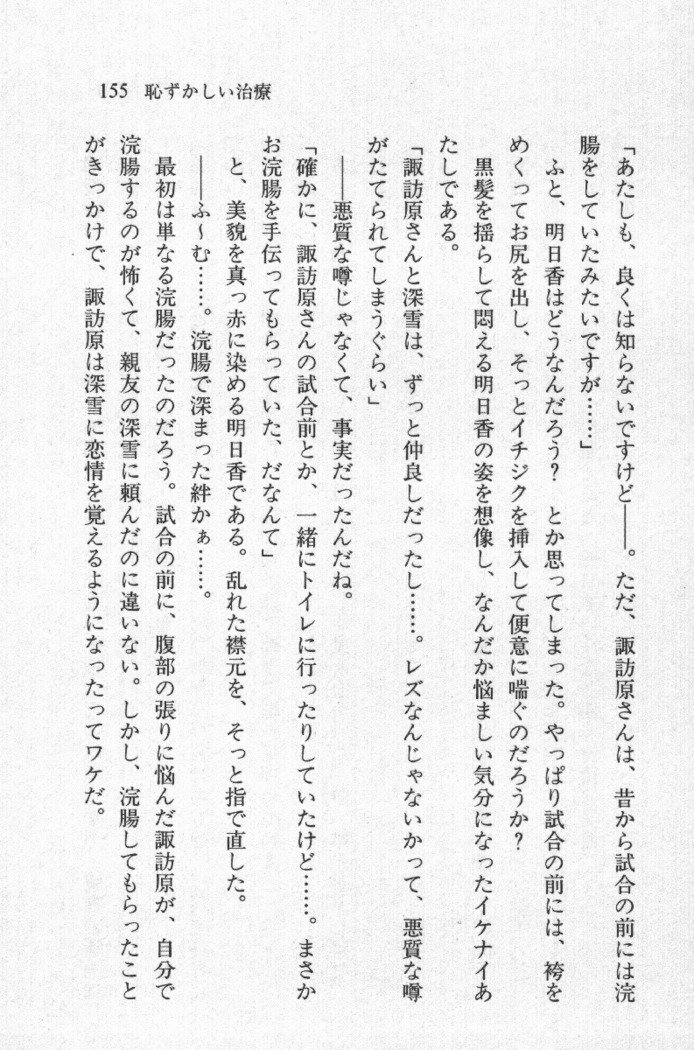 155 恥ずかしい治療
「あたしも、良くは知らないですけど――。ただ、諏訪原さんは、昔から試合の前には浣
腸をしていたみたいですが……」
ふと、明日香はどうなんだろう？　とか思ってしまった。やっぱり試合の前には、袴を
めくってお尻を出し、そっとイチジクを挿入して便意に喘ぐのだろうか？
黒髪を揺らして悶える明日香の姿を想像し、なんだか悩ましい気分になったイケナイあ
たしである。
「諏訪原さんと深雪は、ずっと仲良しだったし……。レズなんじゃないかって、悪質な噂
がたてられてしまうぐらい」
――悪質な噂じゃなくて、事実だったんだね。
「確かに、諏訪原さんの試合前とか、一緒にトイレに行ったりしていたけど……。まさか
お浣腸を手伝ってもらっていた、だなんて」
と、美貌を真っ赤に染める明日香である。乱れた襟元を、そっと指で直した。
――ふ～む……。浣腸で深まった絆かぁ……。
最初は単なる浣腸だったのだろう。試合の前に、腹部の張りに悩んだ諏訪原が、自分で
浣腸するのが怖くて、親友の深雪に頼んだのに違いない。しかし、浣腸してもらったこと
がきっかけで、諏訪原は深雪に恋情を覚えるようになったってワケだ。